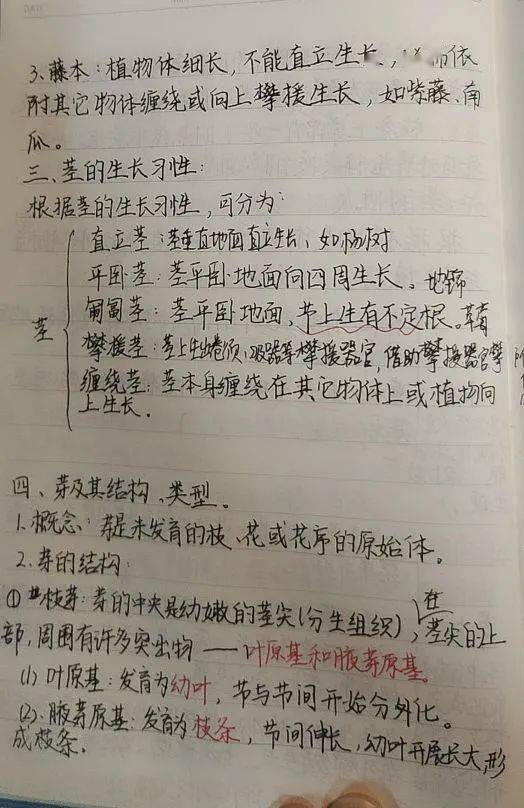 3、藤本：植物体细长，不能直立生长，而依
附其它物体缠绕或向上攀援生长，如紫藤、南
瓜。
三、茎的生长习性：
根据茎的生长习性，可分为：
直立茎：茎垂直地面直立生长，如杨树
平卧茎：茎平卧地面向四周生长。地锦
茎
匍匐茎：茎平卧地面，节上生有不定根。草莓
攀援茎：茎上生出卷须、吸器等攀援器官，借助攀援器官攀
缠绕茎：茎本身缠绕在其它物体上或植物向
上生长。
四、芽及其结构、类型。
1、概念：芽是未发育的枝、花或花序的原始体。
2、芽的结构：
①枝芽：芽的中央是幼嫩的茎尖（分生组织），在茎尖的上
部，周围有许多突出物——叶原基和腋芽原基。
(1) 叶原基：发育为幼叶，节与节间开始分外化。
(2). 腋芽原基：发育为枝条，节间伸长，幼叶开展长大形
成枝条.